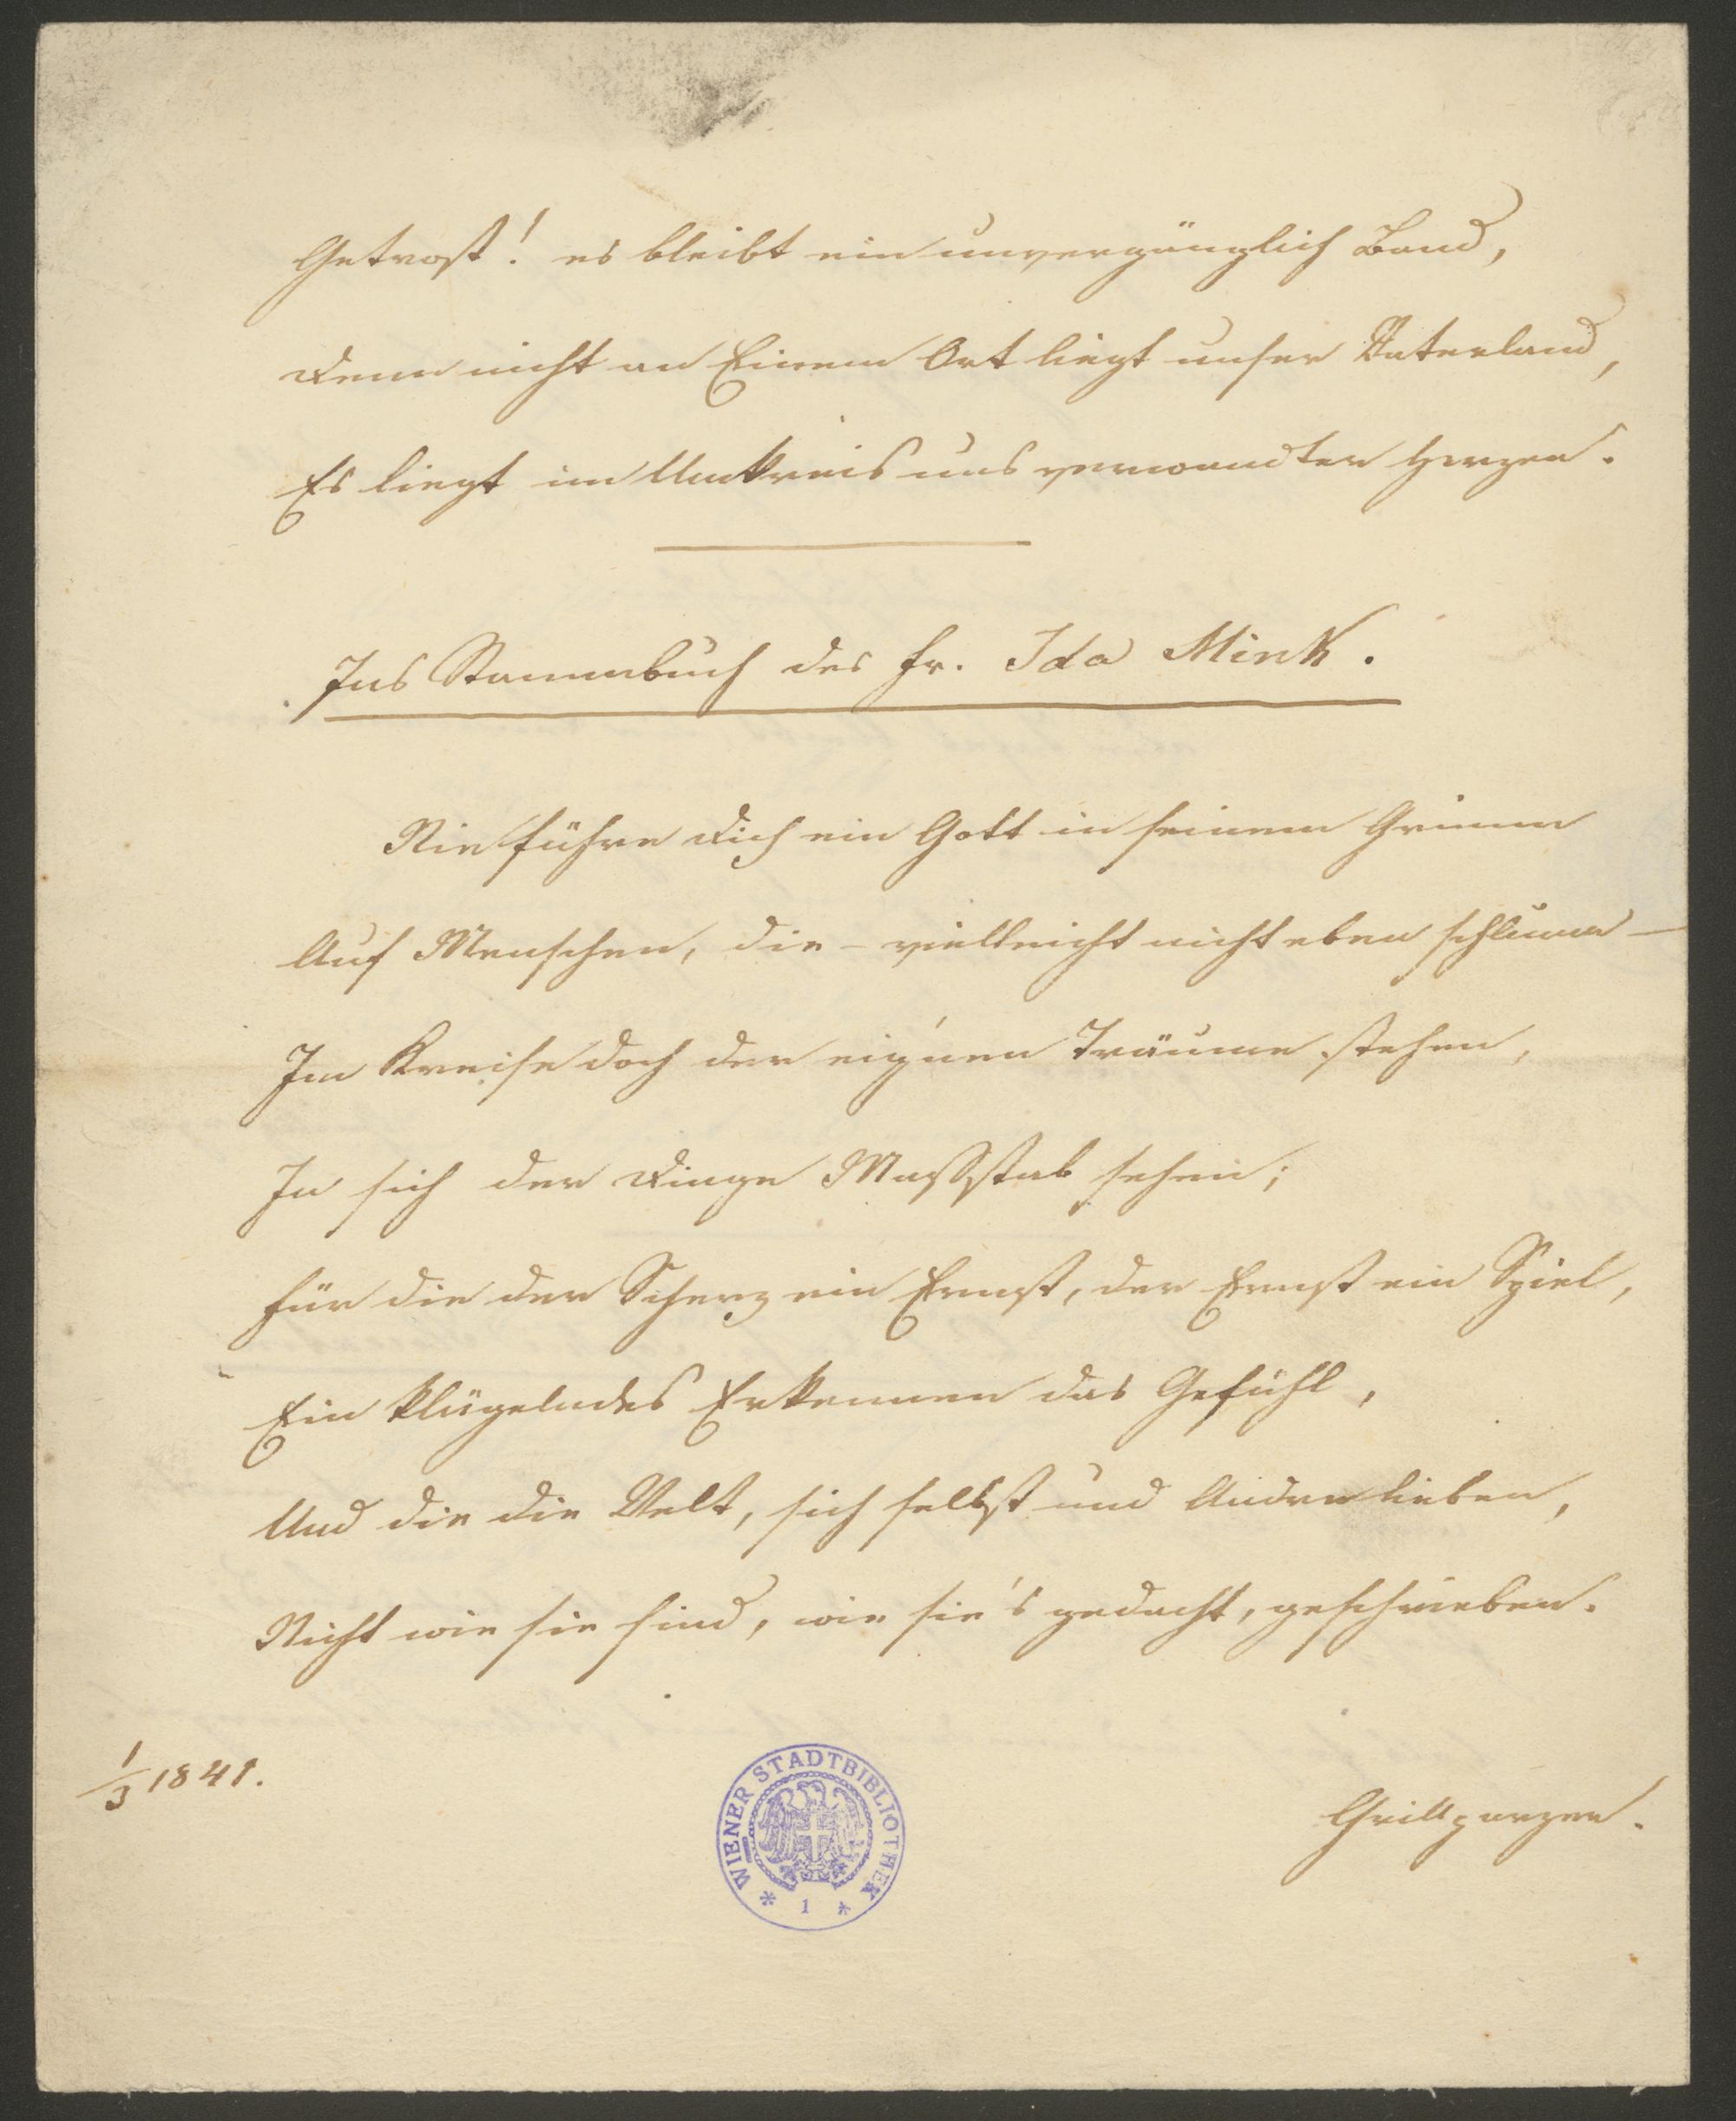 Getrost! es bleibt ein unvergänglich Band,
Denn nicht an Einem Ort liegt unser Vaterland,
Es liegt im Umkreis uns verwandter Herzen.
Ins Stammbuch der Fr. Ida Mink.
Nie führe Dich ein Gott in seinem Grimm
Auf Menschen, die – vielleicht nicht eben schlimm –
Im Kreise doch der eig'nen Träume stehen,
In sich der Dinge Maßstab sehen;
Für die der Scherz ein Ernst, der Ernst ein Spiel,
Ein klügelndes Erkennen das Gefühl,
Und die die Welt, sich selbst und Andre lieben,
Nicht wie sie sind, wie sie's gedacht, geschrieben.
1/3 1841.
Grillparzer.
WIENER STADTBIBLIOTHEK
* 1 *